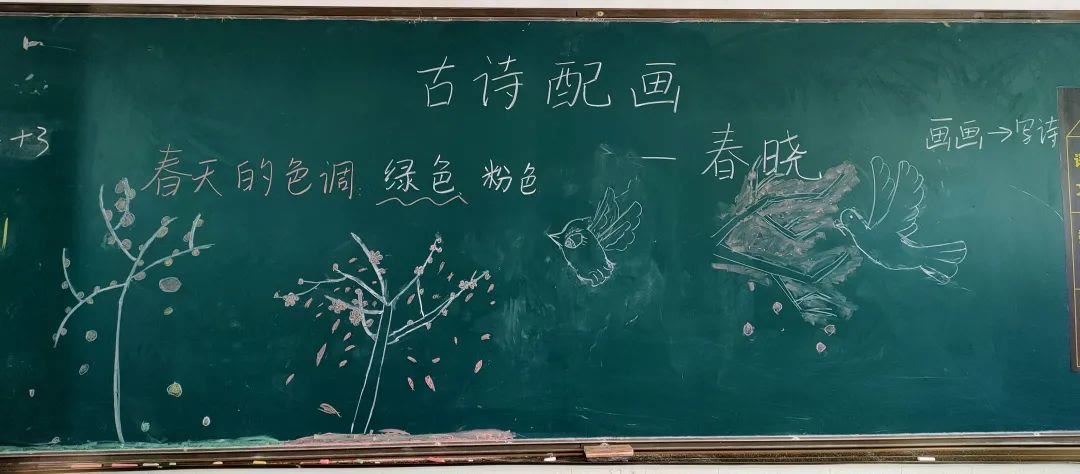 古诗配画
一春晓
画画→写诗
+3
春天的色调 绿色 粉色